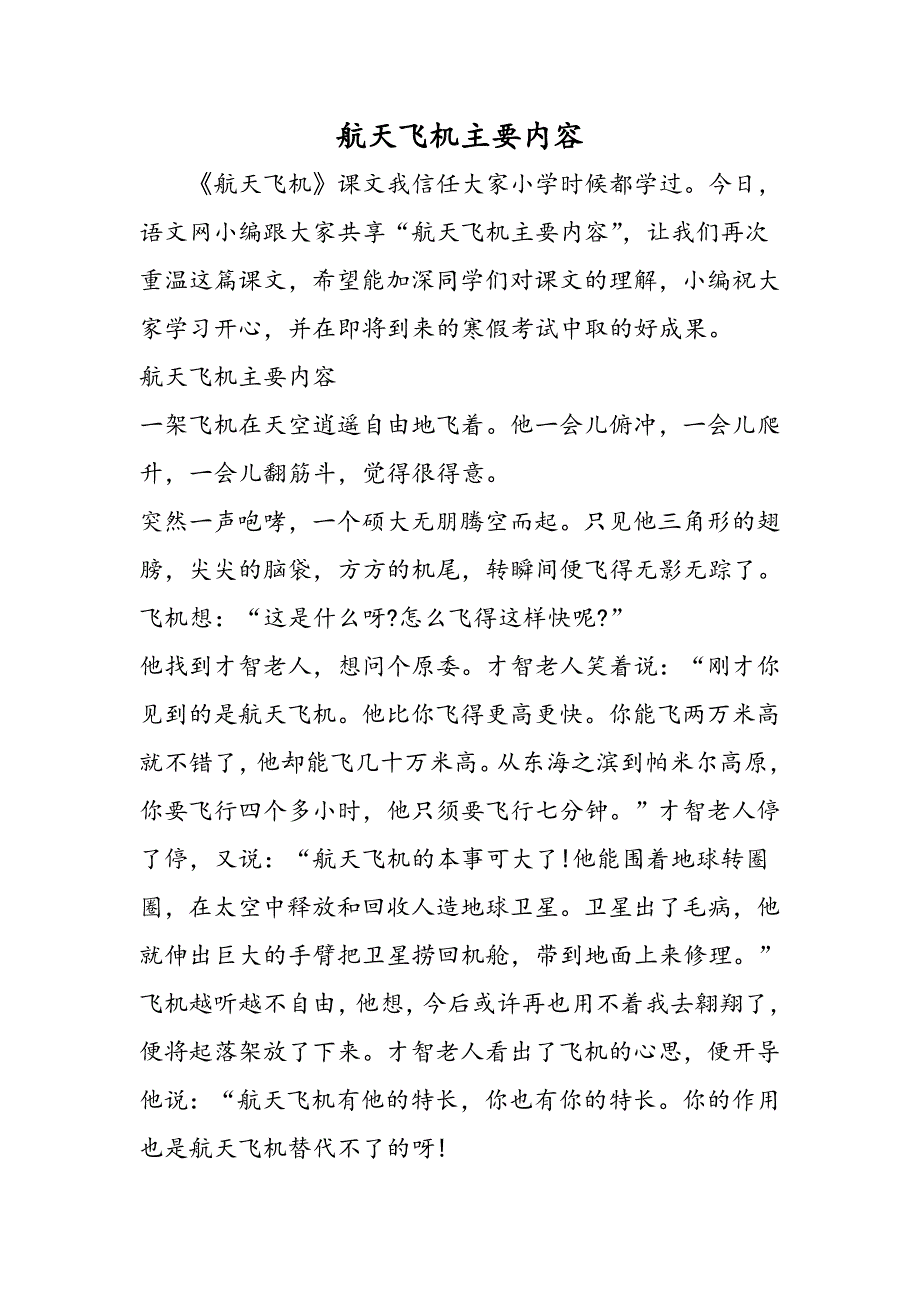 航天飞机主要内容
《航天飞机》课文我信任大家小学时候都学过。今日，
语文网小编跟大家共享“航天飞机主要内容”，让我们再次
重温这篇课文，希望能加深同学们对课文的理解，小编祝大
家学习开心，并在即将到来的寒假考试中取的好成果。
航天飞机主要内容
一架飞机在天空逍遥自由地飞着。他一会儿俯冲，一会儿爬
升，一会儿翻筋斗，觉得很得意。
突然一声咆哮，一个硕大无朋腾空而起。只见他三角形的翅
膀，尖尖的脑袋，方方的机尾，转瞬间便飞得无影无踪了。
飞机想：“这是什么呀?怎么飞得这样快呢?”
他找到才智老人，想问个原委。才智老人笑着说：“刚才你
见到的是航天飞机。他比你飞得更高更快。你能飞两万米高
就不错了，他却能飞几十万米高。从东海之滨到帕米尔高原，
你要飞行四个多小时，他只须要飞行七分钟。”才智老人停
了停，又说：“航天飞机的本事可大了!他能围着地球转圈
圈，在太空中释放和回收人造地球卫星。卫星出了毛病，他
就伸出巨大的手臂把卫星捞回机舱，带到地面上来修理。”
飞机越听越不自由，他想，今后或许再也用不着我去翱翔了，
便将起落架放了下来。才智老人看出了飞机的心思，便开导
他说：“航天飞机有他的特长，你也有你的特长。你的作用
也是航天飞机替代不了的呀!